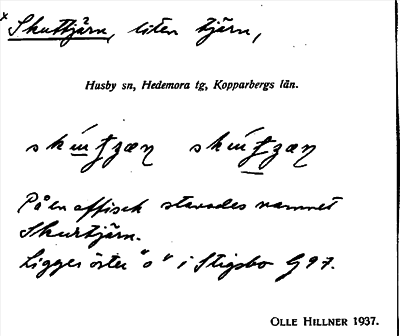 x Skuttjärn, liten tjärn,
Husby sn, Hedemora tg, Kopparbergs län.
På en affisch stavades namnet
Skurtjärn.
Ligger öster "o" i Stigsbo G97.
OLLE HILLNER 1937.